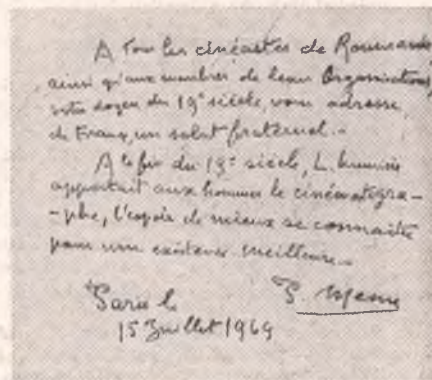 A Tous les cinéastes de Roumanie
ainsi qu'aux membres de leurs Organisations,
votre doyen du 19e siècle, vous adresse,
de France, un salut fraternel. -
A la fin du 19e siècle, L. Lumière
apportait aux hommes le cinématogra-
-phe, l'espoir de mieux se connaître
pour une existence meilleure. -
Paris le
15 Juillet 1969